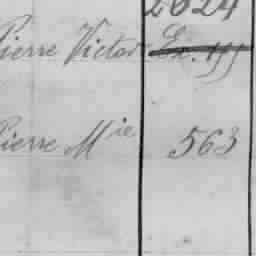 2624
Pierre Victor
Pierre Mie 563